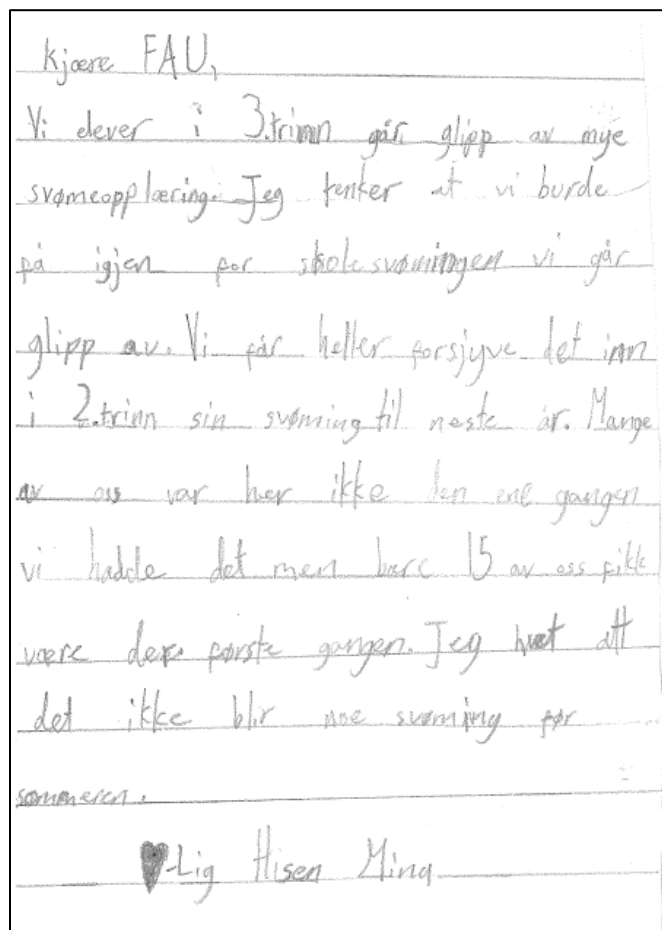 kjære FAU,
Vi elever i 3.trinn går glipp av mye
svømeopplæring. Jeg tenker at vi burde
få igjen for skolesvømingen vi går
glipp av. Vi får heller forsjyve det inn
i 2.trinn sin svømning til neste år. Mange
av oss var her ikke den ene gangen
vi hadde det men bare 15 av oss fikk
være der første gangen. Jeg huet att
det ikke blir noe svøming før
sommeren.
♥-Lig Hisen Mina